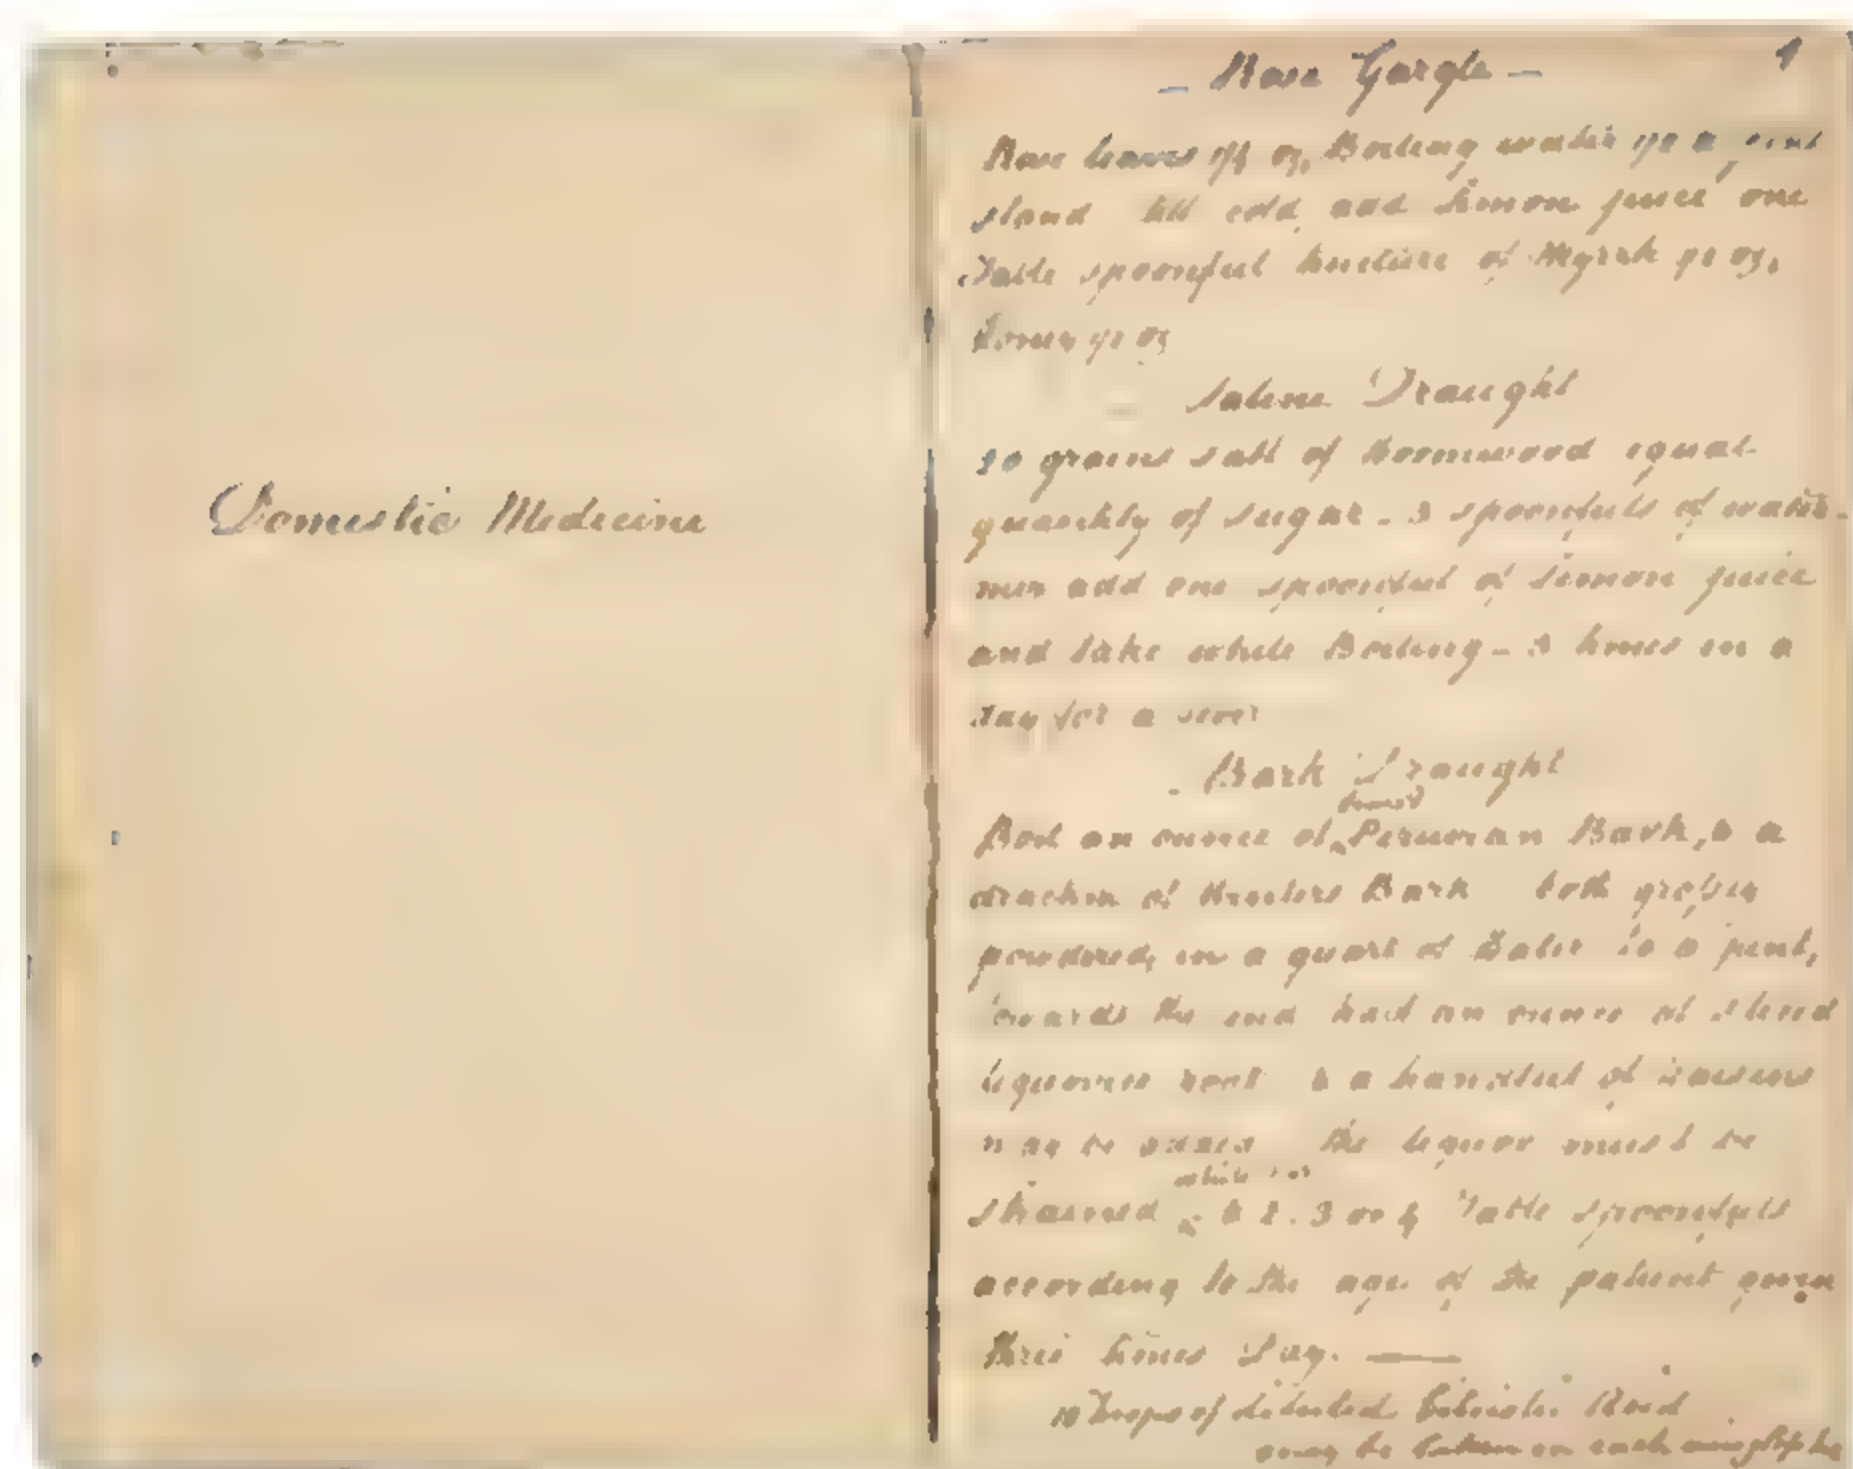 Domestic Medicine
1
- Rose Gargle -
Rose leaves oz, Boiling water a pint
stand till cold, add Limon juice one
Table spoonful tincture of Myrrh oz,
honey oz
Saline Draught
20 grains salt of Wormwood equal
quantity of sugar - 3 spoonfuls of water -
mix add one spoonful of Limon juice
and take while Boiling - 3 times in a
day for a fever
Bark Draught
Boil an ounce of Peruvian Bark, & a
drachm of Winters Bark both grossly
powdered, in a quart of Water to a pint,
towards the end half an ounce of sliced
liquorice root & a handful of raisins
may be added the liquor must be
strained & 2. 3 or 4 Table spoonfuls
according to the age of the patient given
three times Day. —
10 Drops of diluted Acid
may be taken in each